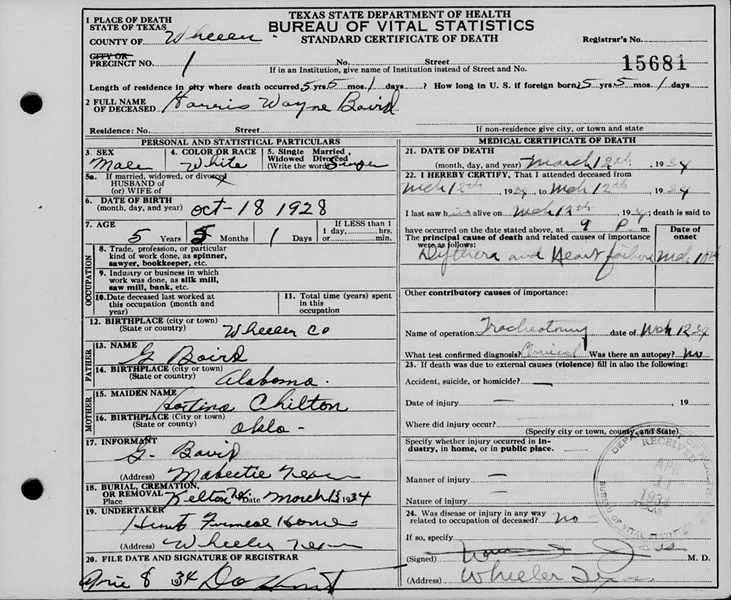 TEXAS STATE DEPARTMENT OF HEALTH
BUREAU OF VITAL STATISTICS
STANDARD CERTIFICATE OF DEATH
1 PLACE OF DEATH
STATE OF TEXAS
COUNTY OF Wheeler
Registrar's No.
CITY OR
PRECINCT NO. 1 No. Street
15681
If in an Institution, give name of Institution instead of Street and No.
Length of residence in city where death occurred 5 yrs 5 mos. 1 days? How long in U. S. if foreign born 5 yrs 5 mos. 1 days
2 FULL NAME
OF DECEASED Harris Wayne Baird
Residence: No. Street If non-residence give city, or town and state
PERSONAL AND STATISTICAL PARTICULARS
3. SEX
Male
4. COLOR OR RACE
White
5. Single Married,
Widowed Divorced
(Write the word) Single
5a. If married, widowed, or divorced
HUSBAND OF
(or) WIFE OF
6. DATE OF BIRTH
(month, day, and year) Oct-18 1928
7. AGE
5 Years 5 Months 1 Days
If LESS than 1
1 day, hrs.
or min.
OCCUPATION
8. Trade, profession, or particular
kind of work done, as spinner,
sawyer, bookkeeper, etc.
9. Industry or business in which
work was done, as silk mill,
saw mill, bank, etc.
10. Date deceased last worked at
this occupation (month and
year)
11. Total time (years) spent
in this
occupation
12. BIRTHPLACE (city or town)
(State or country) Wheeler Co
FATHER
13. NAME
G Baird
14. BIRTHPLACE (city or town)
(State or country) Alabama.
MOTHER
15. MAIDEN NAME
Chilton
16. BIRTHPLACE (City or town)
(State or country) Okla-
17. INFORMANT
G. Baird
(Address) Mobeetie Texas
18. BURIAL, CREMATION,
OR REMOVAL
Place Kelton Date March 13 1934
19. UNDERTAKER
Hunt Funeral Home
(Address) Wheeler Texas
20. FILE DATE AND SIGNATURE OF REGISTRAR
8 34 Hunt
MEDICAL CERTIFICATE OF DEATH
21. DATE OF DEATH
(month, day, and year) March 12th, 1934
22. I HEREBY CERTIFY, That I attended deceased from
Mch 12th 1934 to Mch 12th 1934
I last saw him alive on Mch 12th 1934; death is said to
have occurred on the date stated above, at 9 P. m.
The principal cause of death and related causes of importance
were as follows:
Date of
onset
Dyptheria and Heart failure Mch 10th
Other contributory causes of importance:
Name of operation Tracheotomy date of Mch 12 34
What test confirmed diagnosis? Clinical Was there an autopsy? no
23. If death was due to external causes (violence) fill in also the following:
Accident, suicide, or homicide? —
Date of injury — , 19
Where did injury occur?
(Specify city or town, county, and State)
Specify whether injury occurred in industry, in home, or in public place.
Manner of injury —
Nature of injury —
24. Was disease or injury in any way
related to occupation of deceased? no -
If so, specify
(Signed) M. D.
(Address) Wheeler Texas
RECEIVED
APR
11
BUREAU OF VITAL